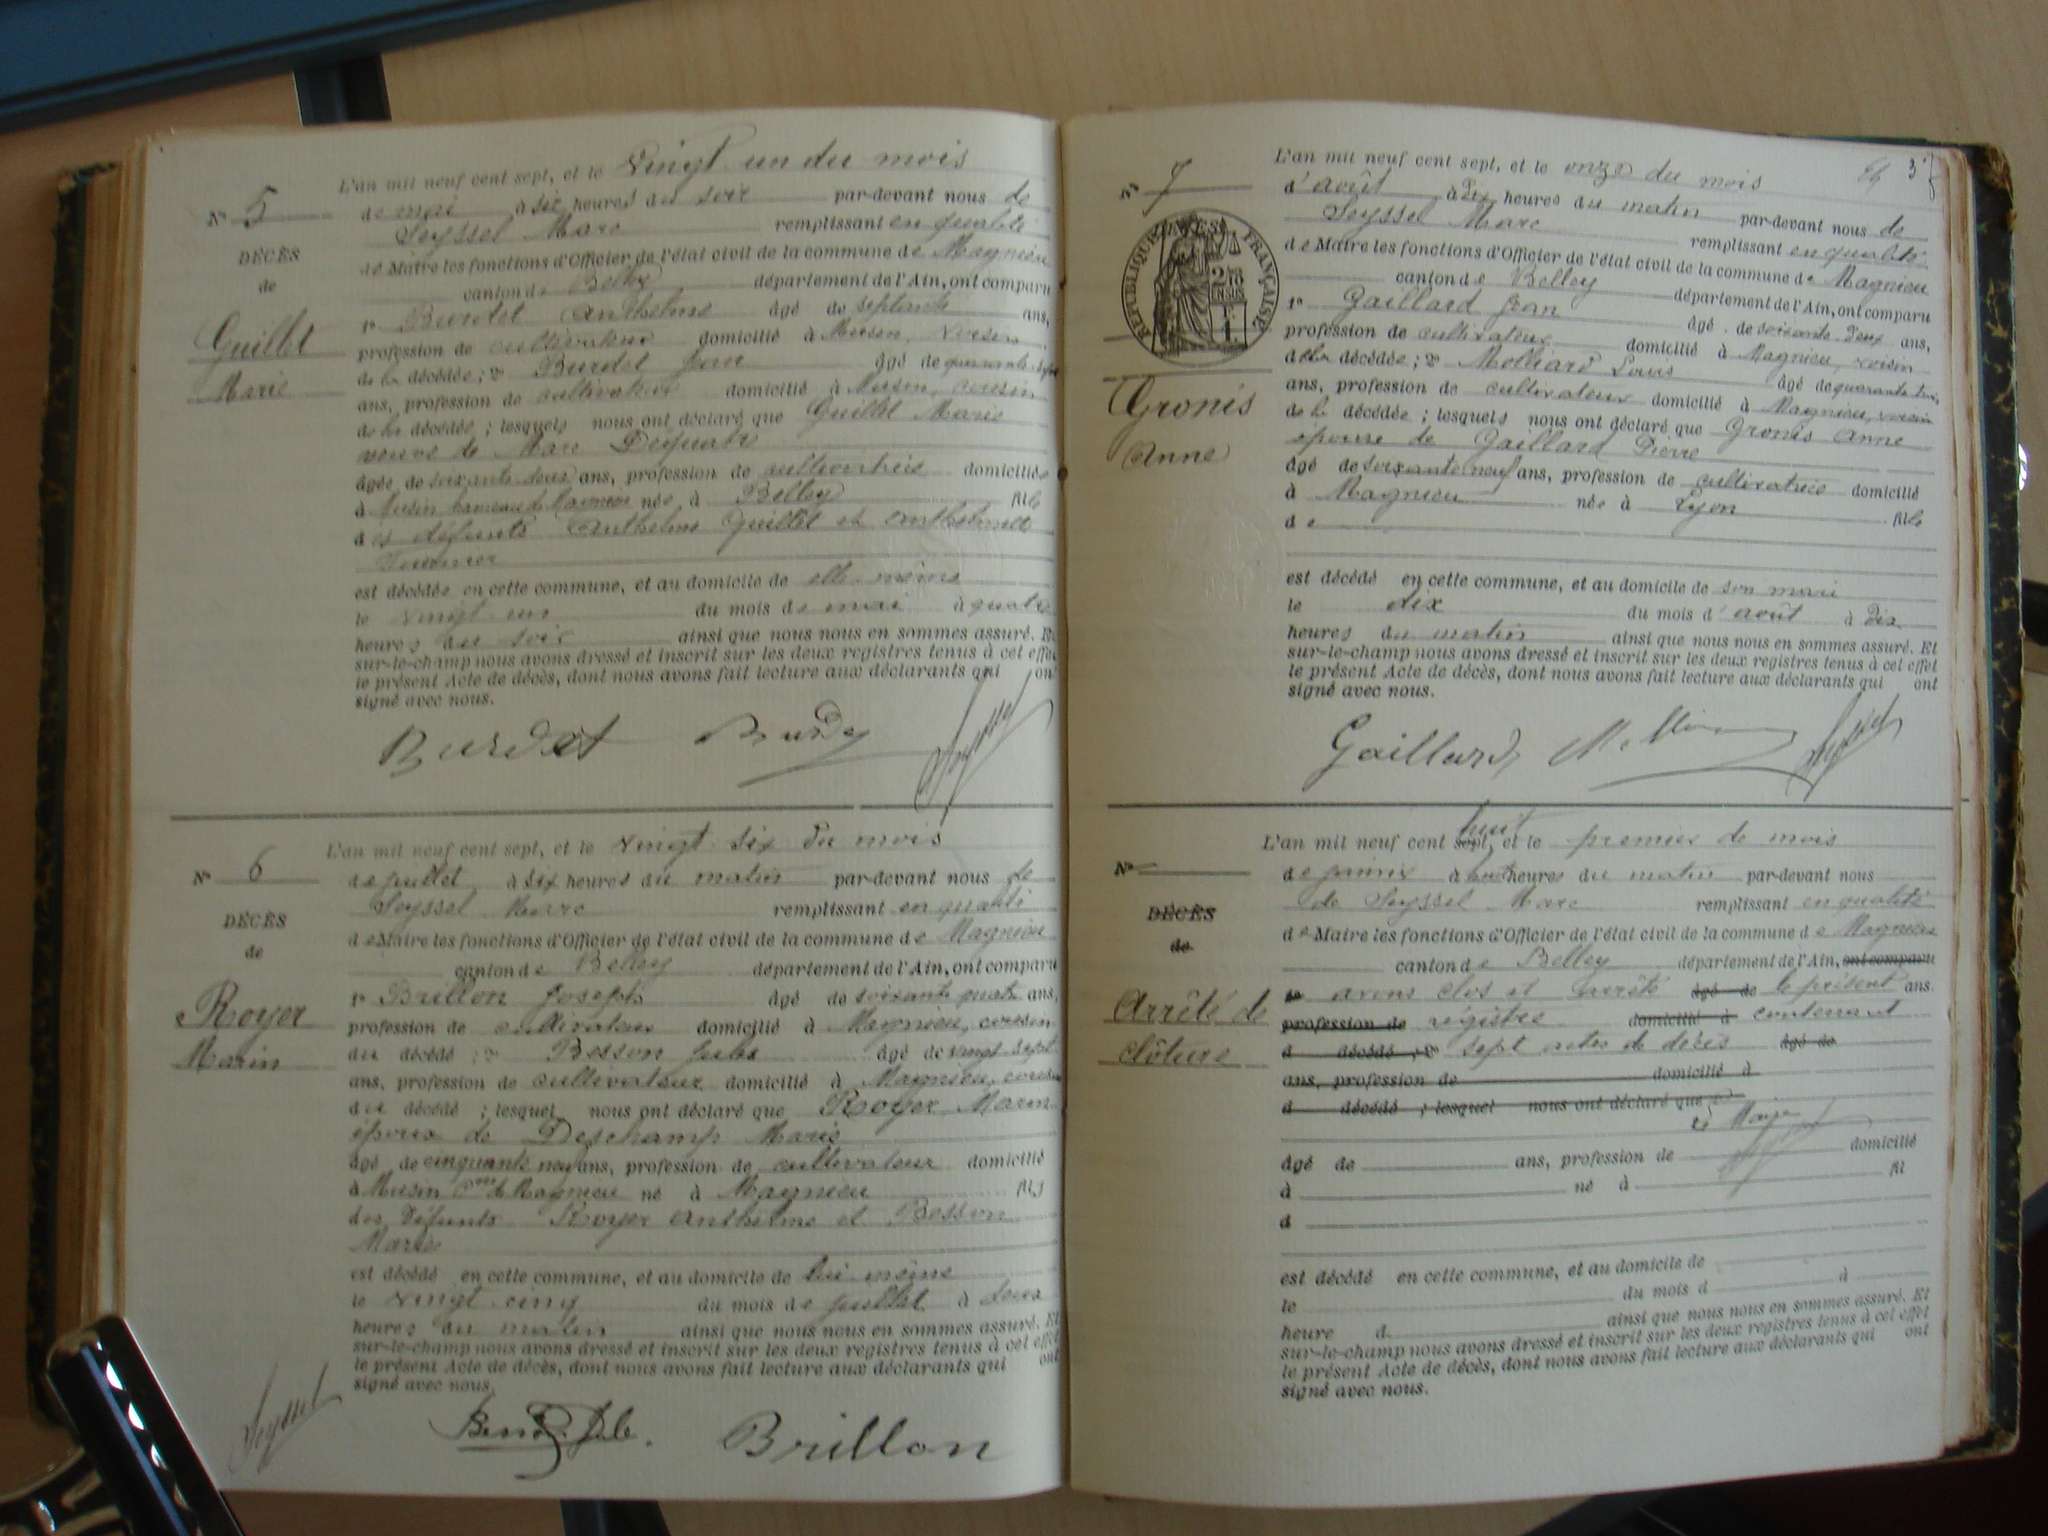 L'an mil neuf cent sept, et le vingt un du mois
N° 5
de mai à six heures du soir par-devant nous de
Seyssel Marc remplissant en qualité
DÉCÈS
de Maire les fonctions d'Officier de l'état civil de la commune de Magnieu
de
canton de Belley département de l'Ain, ont comparu
Guillet
1° Burdet Anthelme âgé de septante ans,
profession de cultivateur domicilié à Musin, voisin
Marie
de la décédée ; 2° Burdet Jean âgé de quarante-sept
ans, profession de cultivateur domicilié à Musin, voisin
de la décédée ; lesquels nous ont déclaré que Guillet Marie
veuve de Marc
âgée de soixante deux ans, profession de cultivatrice domiciliée
à Musin hameau de Magnieu née à Belley fille
des défunts Anthelme Guillet et Anthelmette
est décédée en cette commune, et au domicile de elle-même
le vingt un du mois de mai à quatre
heures du soir ainsi que nous nous en sommes assuré. Et
sur-le-champ nous avons dressé et inscrit sur les deux registres tenus à cet effet
le présent Acte de décès, dont nous avons fait lecture aux déclarants qui ont
signé avec nous.
Burdet Burdet Seyssel
L'an mil neuf cent sept, et le vingt six du mois
N° 6
de juillet à six heures du matin par-devant nous de
Seyssel Marc remplissant en qualité
DÉCÈS
de Maire les fonctions d'Officier de l'état civil de la commune de Magnieu
de
canton de Belley département de l'Ain, ont comparu
Royer
1° Brillon Joseph âgé de soixante quatre ans,
profession de cultivateur domicilié à Magnieu, cousin
Marin
du décédé ; 2° Besson Jules âgé de vingt-sept
ans, profession de cultivateur domicilié à Magnieu, cousin
du décédé ; lesquel nous ont déclaré que Royer Marin
époux de Deschamp Marie
âgé de cinquante neuf ans, profession de cultivateur domicilié
à Musin Cne de Magnieu né à Magnieu fils
des défunts Royer Anthelme et Besson
Marie
est décédé en cette commune, et au domicile de lui-même
le vingt-cinq du mois de juillet à deux
heures du matin ainsi que nous nous en sommes assuré. Et
sur-le-champ nous avons dressé et inscrit sur les deux registres tenus à cet effet
le présent Acte de décès, dont nous avons fait lecture aux déclarants qui ont
signé avec nous.
Seyssel
Brillon
3
L'an mil neuf cent sept, et le onze du mois
N° 7
d'août à dix heures du matin par-devant nous de
Seyssel Marc remplissant en qualité
RÉPUBLIQUE FRANÇAISE
de Maire les fonctions d'Officier de l'état civil de la commune de Magnieu
canton de Belley département de l'Ain, ont comparu
1° Gaillard Jean âgé de soixante-deux ans,
profession de cultivateur domicilié à Magnieu, voisin
de la décédée ; 2° Molliard Louis âgé de quarante-trois
Gronis
ans, profession de cultivateur domicilié à Magnieu, voisin
de la décédée ; lesquels nous ont déclaré que Gronis Anne
Anne
épouse de Gaillard Pierre
âgé de soixante neuf ans, profession de cultivatrice domicilié
à Magnieu née à Lyon fille
de
est décédé en cette commune, et au domicile de son mari
le dix du mois d'août à dix
heures du matin ainsi que nous nous en sommes assuré. Et
sur-le-champ nous avons dressé et inscrit sur les deux registres tenus à cet effet
le présent Acte de décès, dont nous avons fait lecture aux déclarants qui ont
signé avec nous.
Gaillard Molliard Seyssel
huit
L'an mil neuf cent sept, et le premier de mois
N°
de janvier à huit heures du matin par-devant nous
de Seyssel Marc remplissant en qualité
DÉCÈS
de Maire les fonctions d'Officier de l'état civil de la commune de Magnieu
de
canton de Belley département de l'Ain, ont comparu
Arrêté de
1° avons clos et arrêté âgé de le présent ans.
profession de régistre domicilié à contenant
clôture
d décédé ; 2° sept actes de décès âgé de
ans, profession de domicilié à
d décédé ; lesquel nous ont déclaré que
Le Maire
âgé de ans, profession de domicilié
à né à fil
d
est décédé en cette commune, et au domicile de
le du mois d à
heure d ainsi que nous nous en sommes assuré. Et
sur-le-champ nous avons dressé et inscrit sur les deux registres tenus à cet effet
le présent Acte de décès, dont nous avons fait lecture aux déclarants qui ont
signé avec nous.